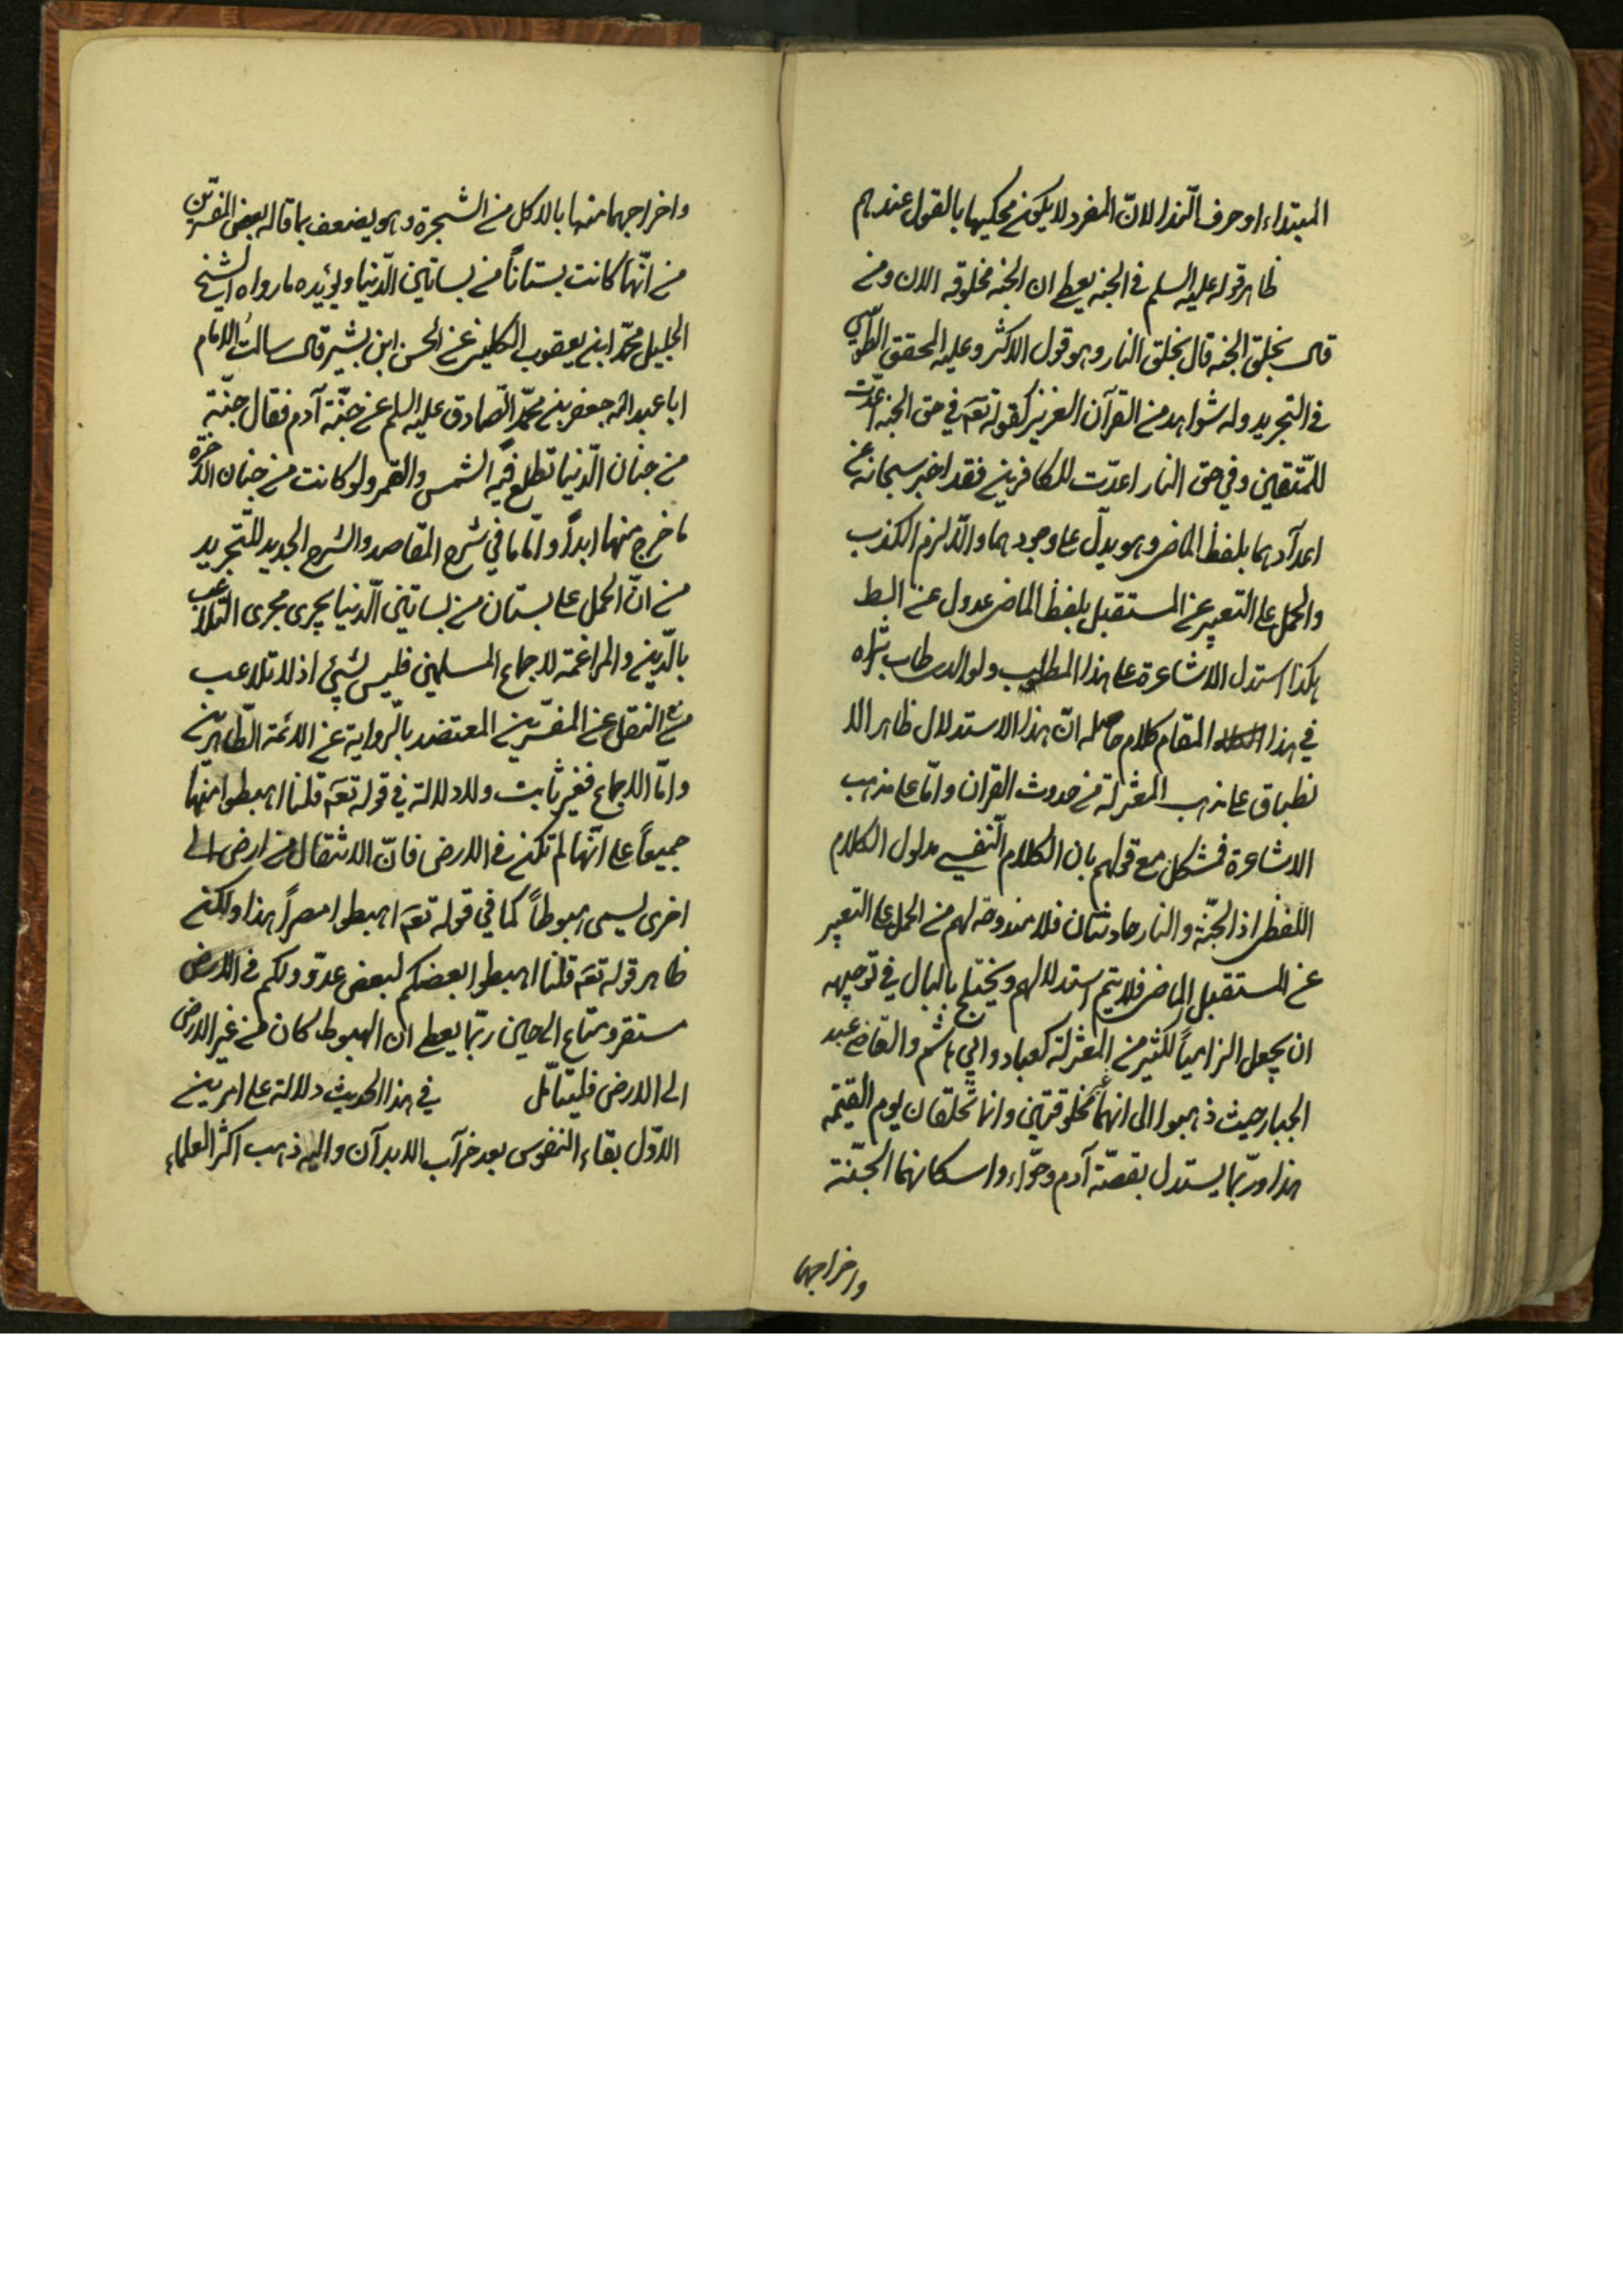 المبتداء او حرف النّدا لانّ المفرد لا يكون محكيها بالقول عندهم
ظاهر قوله عليه السلم في الجنه يعطي ان الجنه مخلوقه الان ومن
قال بخلق الجنه قال بخلق النار وهو قول الاكثر وعليه المحقق الطّوسي
في التجريد وله شواهد من القرآن العزيز كقوله تعٓ في حق الجنه اعدّت
للمتّقين وفي حق النار اعدّت للكافرين فقد اخبر سبحانه عن
اعدآدهما بلفظ الماضي وهو يدلّ على وجودهما والّا لزم الكذب
والحمل على التعبير عن المستقبل بلفظ الماضي عدول عن
هكذا استدل الاشاعرة على هذا المطلوب ولوالدي طاب ثراه
في هذا المقام كلام حاصله انّ هذا الاستدلال ظاهر الا
نطباق على مذهب المعتزلة من حدوث القران وامّا على مذهب
الاشاعرة فمشكل مع قولهم بان الكلام النّفسي مدلول الكلام
اللّفظي اذ الجنّة والنار حادثتان فلا مندوحة لهم من الحمل على التعبير
عن المستقبل بالماضي فلا يتم استدلالهم ويختلج بالبال في توجيهه
ان يجعل الزامياً لكثير من المعتزلة كعباد وابي هاشم والقاضي عبد
الجبار حيث ذهبوا الى انهما غير مخلوقتين وانما تخلقان يوم القيمة
هذا وربّما يستدل بقصّة آدم وحوّاء واسكانهما الجنّة
واخراجهما
واخراجهما منها بالاكل من الشجرة وهو يضعف بما قاله بعض المفسّرين
من انّها كانت بستاناً من بساتين الدّنيا ويؤيده ما رواه الشيخ
الجليل محمّد ابن يعقوب الكليني عن الحسن ابن بشير قال سالت الامام
ابا عبد الله جعفر بن محمّد الصّادق عليه السلم عن جنّة آدم فقال جنّة
من جنان الدّنيا تطلع فيه الشمس والقمر ولو كانت من جنان الآخرة
ما خرج منها ابداً وامّا ما في شرح المقاصد والشرح الجديد للتّجريد
من انّ الحمل على بستان من بساتين الدّنيا يجري مجرى التلاعب
بالدّين والمراغمة لاجماع المسلمين فليس بشيئ اذ لا تلاعب
مع النقل عن المفسّرين المعتضد بالرّواية عن الائمة الطّاهرين
وامّا الاجماع فغير ثابت ولا دلالة في قوله تعٓ قلنا اهبطوا منها
جميعاً على انّها لم تكن في الارض فانّ الانتقال من ارض الى
اخرى يسمى هبوطاً كما في قوله تعٓ اهبطوا مصراً هذا ولكن
ظاهر قوله تعٓ قلنا اهبطوا بعضكم لبعض عدوّ ولكم في الارض
مستقر ومتاع الى حين ربّما يعطي ان الهبوط كان من غير الارض
الى الارض فليتامّل في هذا الحديث دلالة على امرين
الاوّل بقاء النفوس بعد خرآب الابدآن واليه ذهب اكثر العلماء